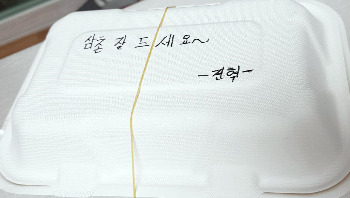 삼촌 잘 드세요~
-건혁-